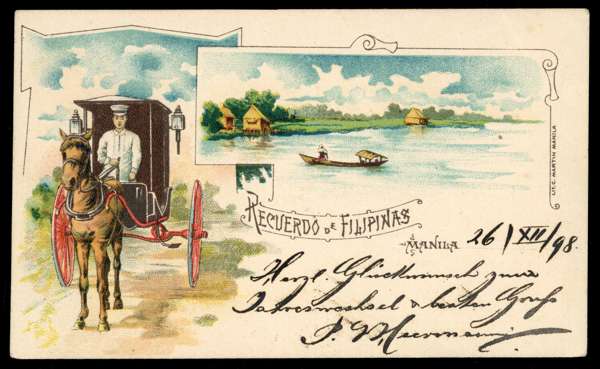 RECUERDO DE FILIPINAS
MANILA 26/XII/98.
Herzl. Glückwunsch zum
Jahreswechsel & besten Gruß
LIT. C. MARTIN MANILA